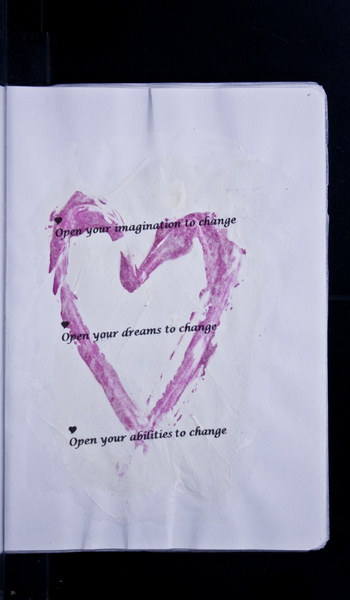 ♥
Open your imagination to change
♥
Open your dreams to change
♥
Open your abilities to change